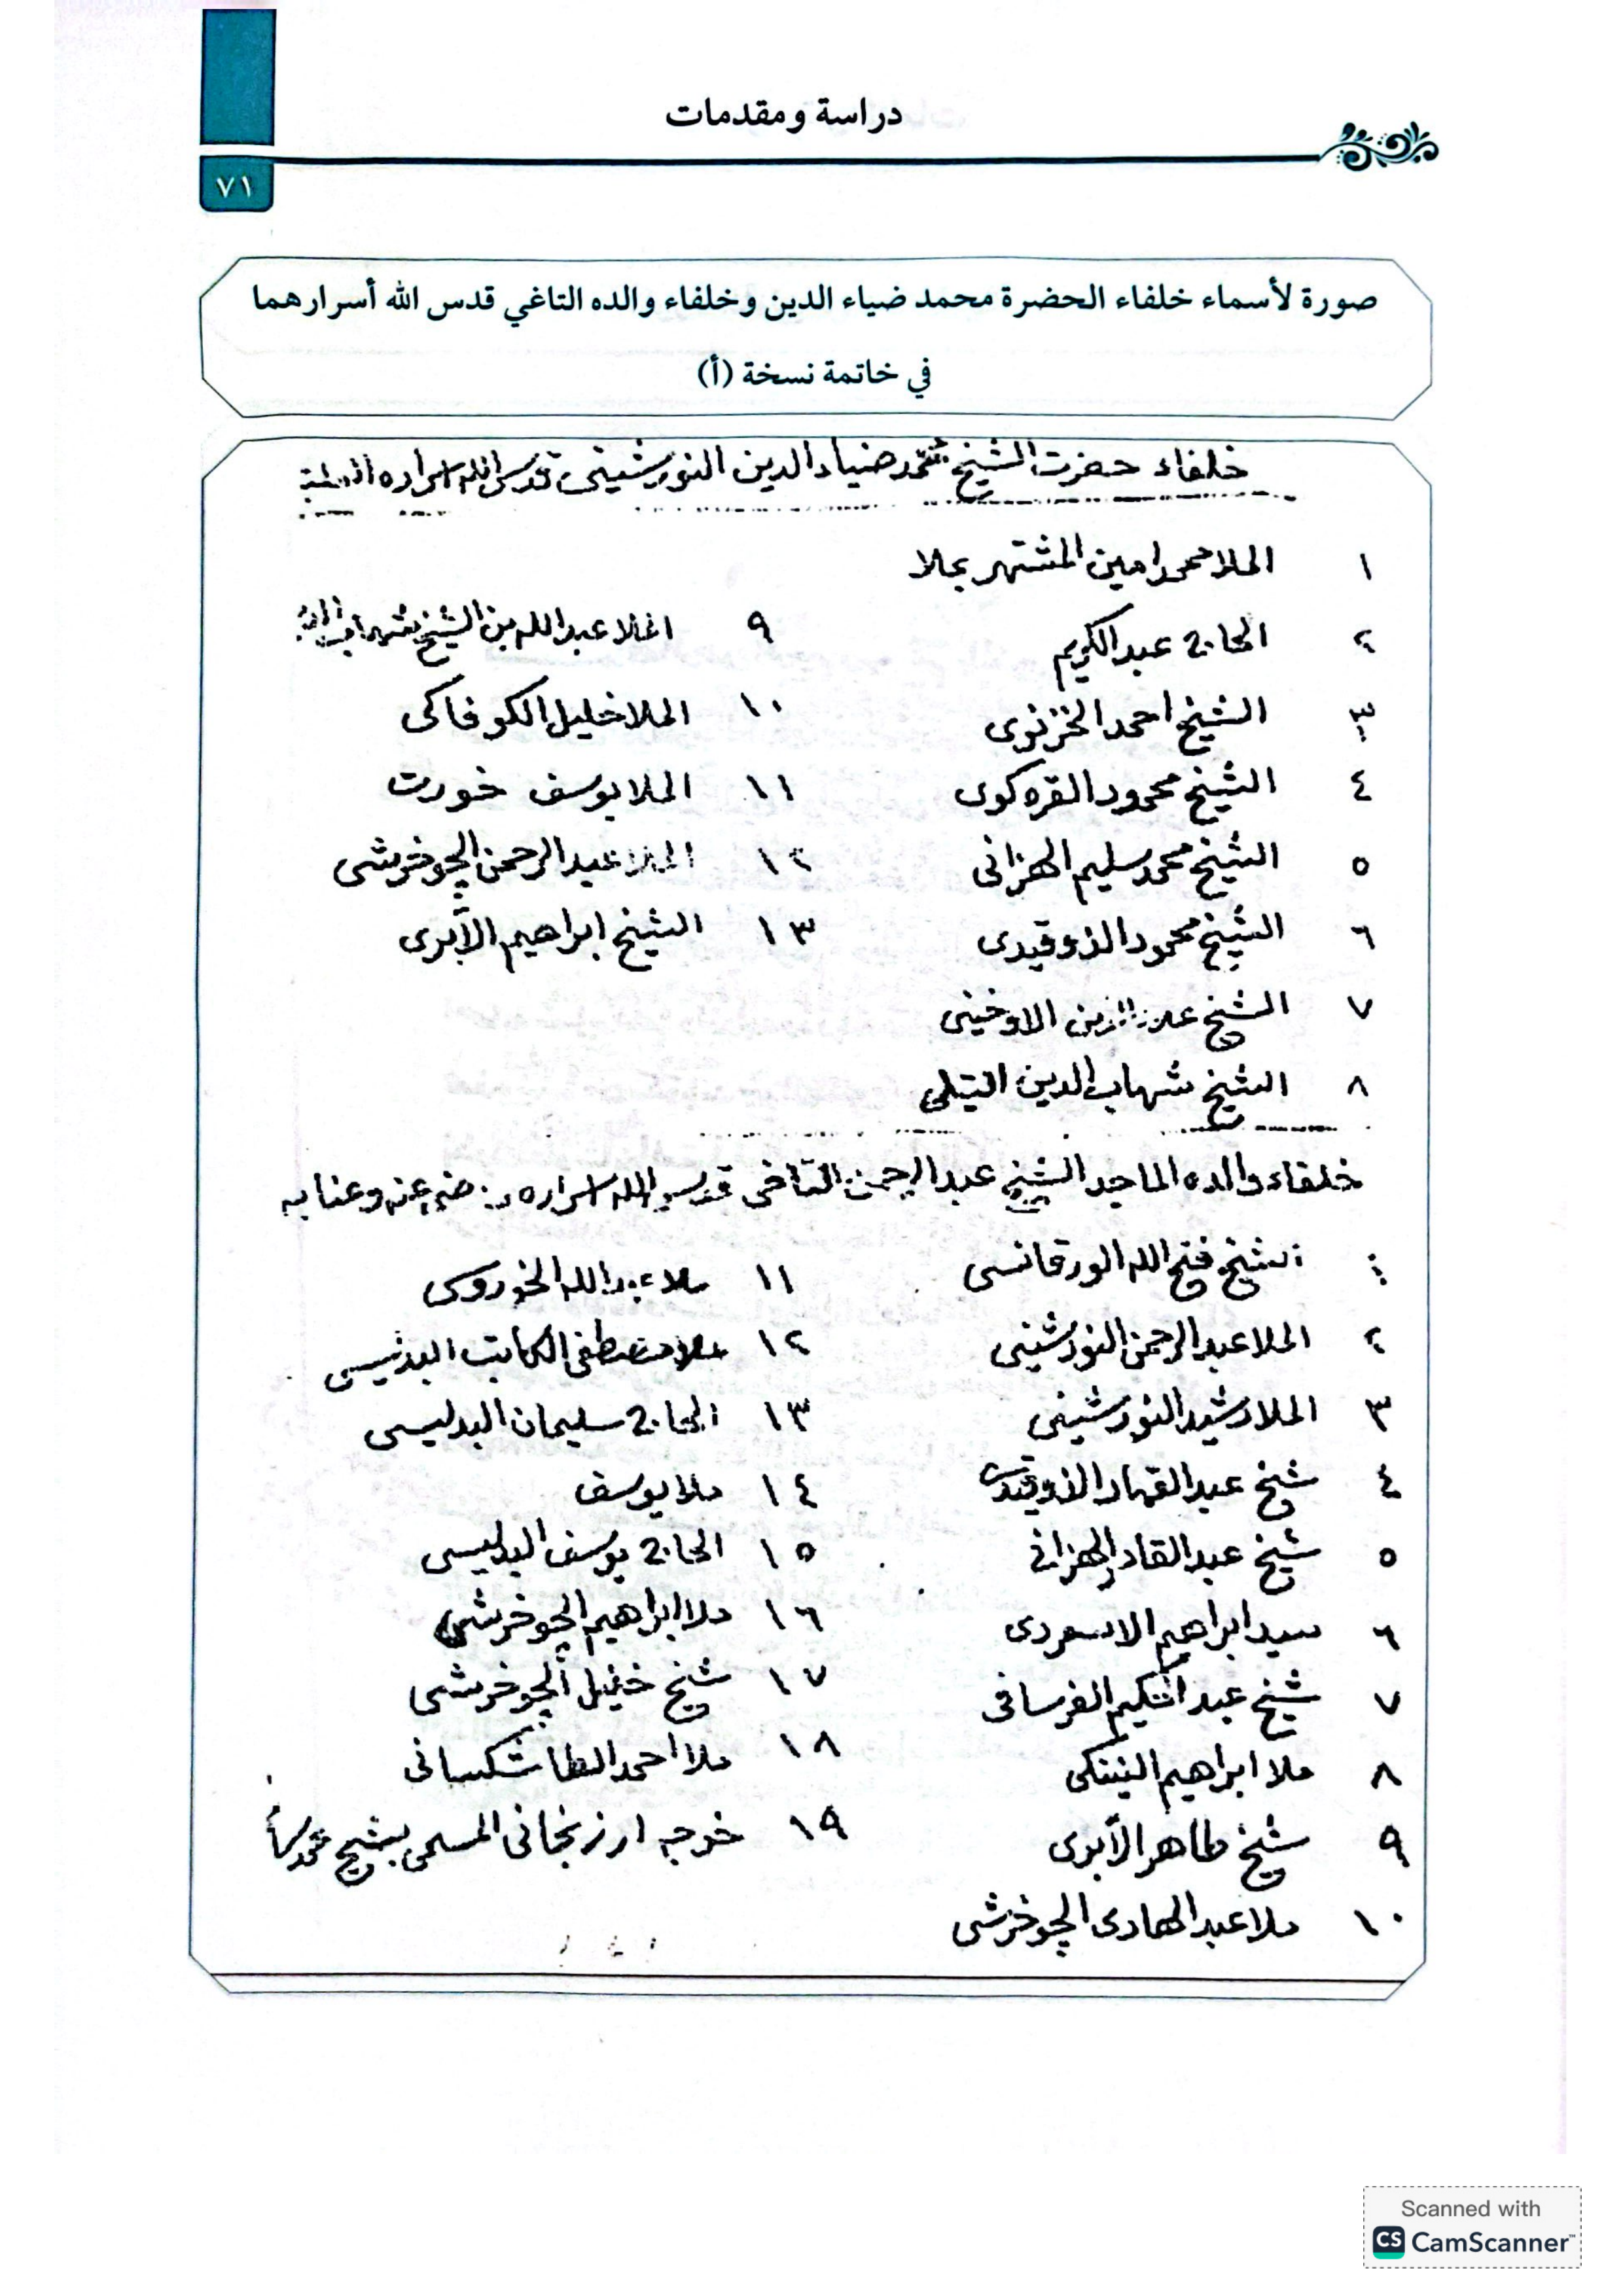 دراسة ومقدمات
٧١
صورة لأسماء خلفاء الحضرة محمد ضياء الدين وخلفاء والده التاغي قدس الله أسرارهما
في خاتمة نسخة (أ)
خلفاء حضرت الشيخ محمد ضياء الدين النورشينى قدس الله اسراره
١ الملا محمد امين المشتهر بملا
٢ الحاج عبد الكريم
٣ الشيخ احمد الخزنوى
٤ الشيخ محمود القره كوى
٥ الشيخ محمد سليم الهزانى
٦ الشيخ محمود الذوقيدى
٧ الشيخ علاء الدين الاوخينى
٨ الشيخ شهاب الدين التيلى
٩ الملا عبد الله بن الشيخ شهاب الدين
١٠ الملا خليل الكوفاكى
١١ الملا يوسف خورت
١٢ الملا عبد الرحمن الچوخرشى
١٣ الشيخ ابراهيم الآبرى
خلفاء والده الماجد الشيخ عبد الرحمن التاغى قدس الله اسراره رضى عنه وعنا به
١ الشيخ فتح الله الورقانسى
٢ الملا عبد الرحمن النورشينى
٣ الملا رشيد النورشينى
٤ شيخ عبد القهار الذوقيدى
٥ شيخ عبد القادر الهزانى
٦ سيد ابراهيم الاسعردى
٧ شيخ عبد الحكيم الفرسافى
٨ ملا ابراهيم النينكى
٩ شيخ طاهر الآبرى
١٠ ملا عبد الهادى الچوخرشى
١١ ملا عبد الله الخوروسى
١٢ ملا مصطفى الكاتب البدليسى
١٣ الحاج سليمان البدليسى
١٤ ملا يوسف
١٥ الحاج يوسف البدليسى
١٦ ملا ابراهيم الچوخرشى
١٧ شيخ خليل الچوخرشى
١٨ ملا احمد الطاشكسانى
١٩ خوجه ارزنجانى المسمى بشيخ محمد سامى
Scanned with
CS CamScanner